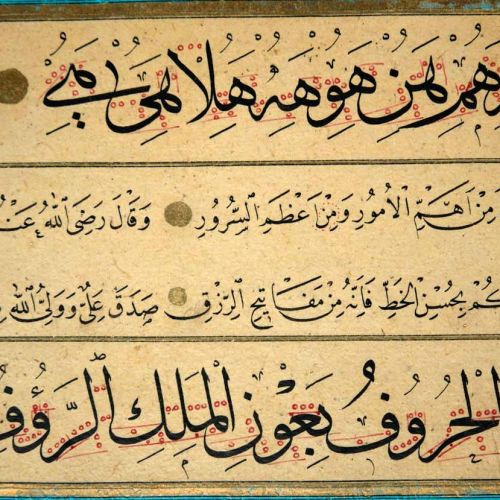 هو هه هلا
مِنْ اَهَمِّ الْاُمُورِ وَمِنْ اَعْظَمِ السُّرُورِ وَقَالَ رَضِىَ اللهُ عَنْهُ
كُمْ بِحُسْنِ الْخَطِّ فَاِنَّهُ مِنْ مَفَاتِيحِ الرِّزْقِ صَدَقَ عَلِىٌّ وَوَلِىُّ اللهِ
الْحُرُوفُ بِعَوْنِ الْمَلِكِ الرَّؤُفِ